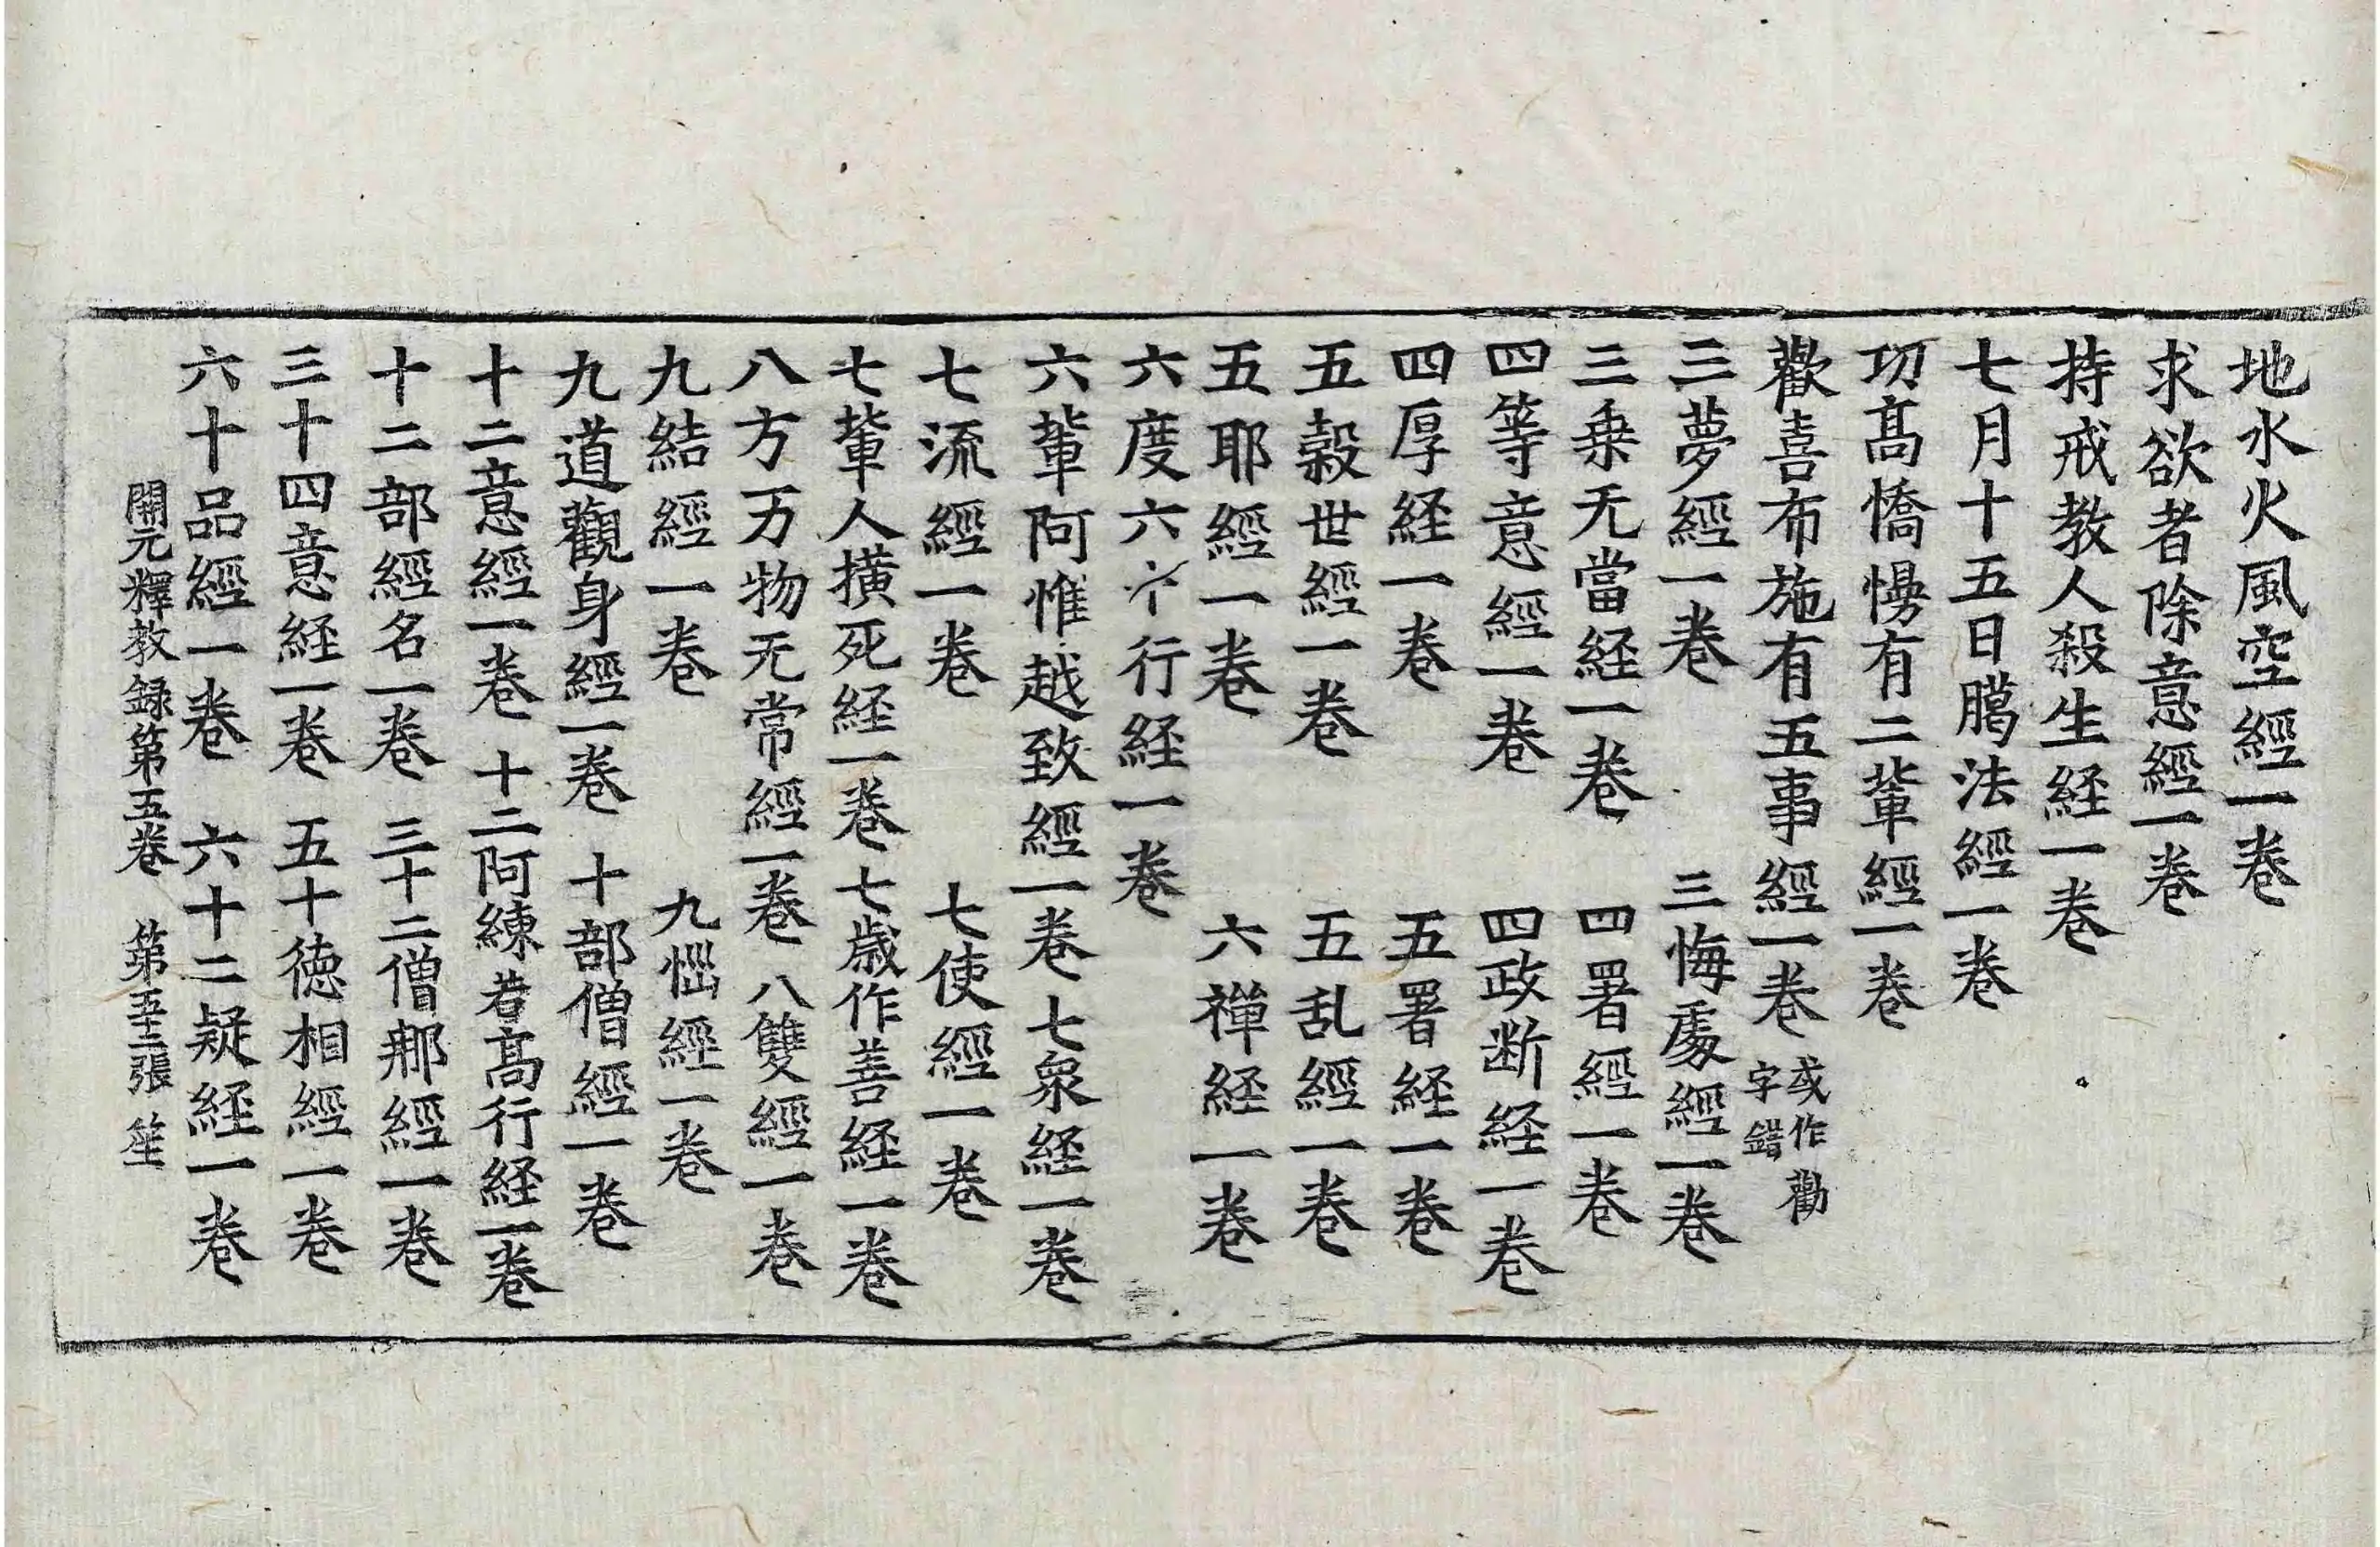 地水火風空經一卷
求欲者除意經一卷
持戒教人殺生経一卷
七月十五日臈法經一卷
功髙憍慢有二軰經一卷
歡喜布施有五事經一卷 或作勸字錯
三夢經一卷 三悔處經一卷
三乗无當経一卷 四署經一卷
四等意經一卷 四政断経一卷
四厚経一卷 五署経一卷
五穀世經一卷 五乱經一卷
五耶經一卷 六禪経一卷
六度六十行経一卷
六軰阿惟越致經一卷 七衆経一卷
七流經一卷 七使經一卷
七軰人横死経一卷 七歳作善経一卷
八方万物无常經一卷 八雙經一卷
九結經一卷 九惱經一卷
九道觀身經一卷 十部僧經一卷
十二意經一卷 十二阿練若髙行経一卷
十二部經名一卷 三十二僧那經一卷
三十四意経一卷 五十德相經一卷
六十品經一卷 六十二疑経一卷
開元釋教録第五卷 第五十二張 笙